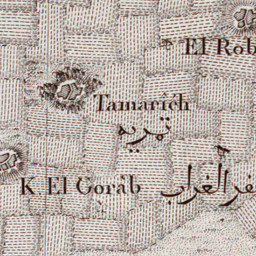 El Rob
Tamarieh
تمريه
K. El Gorâb
كفر الغراب